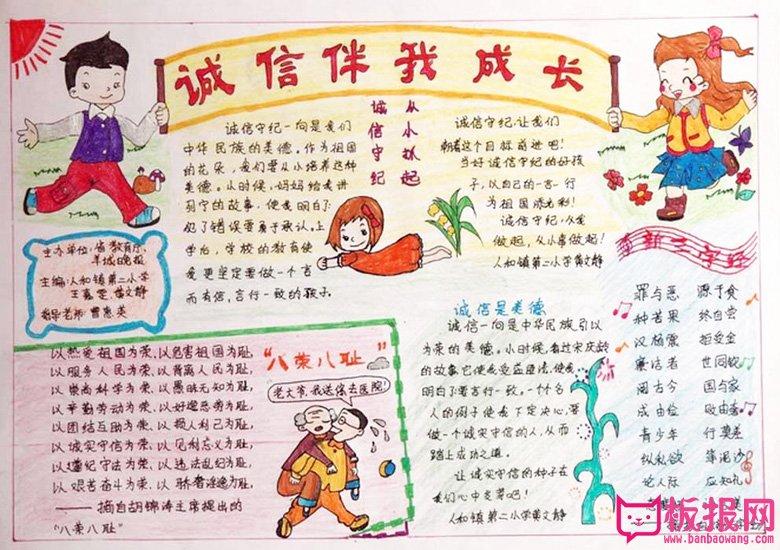 诚信伴我成长
从小抓起
诚信守纪
诚信守纪一向是我们
中华民族的美德。作为祖国
的花朵,我们要从小培养这种
美德。从时候,妈妈给我讲
列宁的故事,使我明白了
犯了错误要勇于承认。上
学后,学校的教育使
我更坚定要做一个言
而有信,言行一致的孩子。
诚信守纪,让我们
朝着这个目标前进吧!
当好诚信守纪的好孩
子,以自己的一言一行
为祖国添光彩!
诚信守纪,从我
做起,从小事做起!
人和镇第二小学黄文静
主办单位:省教育厅、
羊城晚报
主编:人和镇第二小学
黄文静
指导老师:曹惠英
以热爱祖国为荣、以危害祖国为耻,
以服务人民为荣、以背离人民为耻,
以崇尚科学为荣、以愚昧无知为耻,
以辛勤劳动为荣、以好逸恶劳为耻,
以团结互助为荣、以损人利己为耻,
以诚实守信为荣、以见利忘义为耻,
以遵纪守法为荣、以违法乱纪为耻,
以艰苦奋斗为荣、以骄奢淫逸为耻。
——摘自胡锦涛主席提出的
“八荣八耻”
“八荣八耻”
老大爷,我送您去医院!
诚信是美德
诚信一向是中华民族引以
为荣的美德。小时候,看过宋庆龄
的故事
明白了要言行一致。一个个名
人的例子使我下定决心,要
做一个诚实守信的人,从而
踏上成功之道。
让诚实守信的种子在
我们心中发芽吧!
人和镇第二小学黄文静
新三字经
罪与恶 源于贪
种苦果 终自尝
拒安金
廉洁者 世同钦
阅古今 国与家
成由俭 败由奢
青少年 行莫差
纵私欲 靠泥沙
论人际 应知礼
板报网
www.banbaowang.com